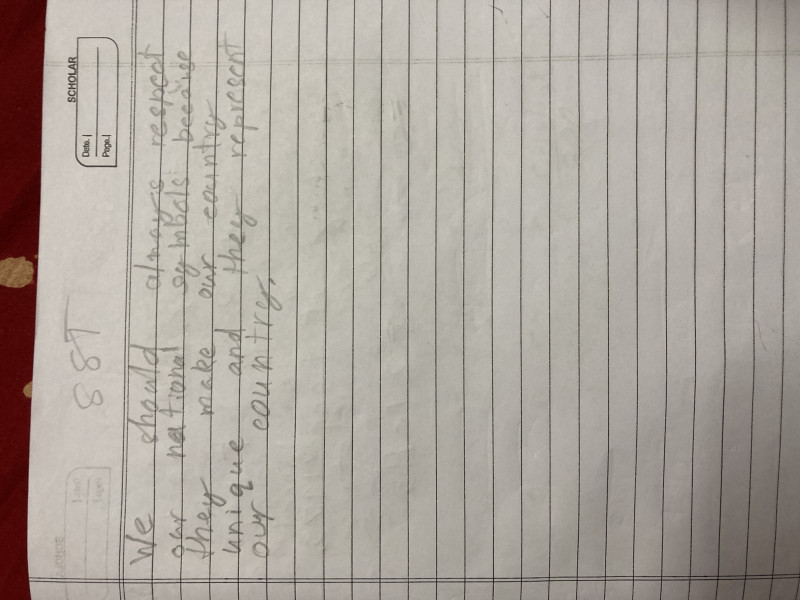 SCHOLAR
Date.
Page.
SST
We should always respect
our national symbols because
they make our country
unique and they represent
our country.